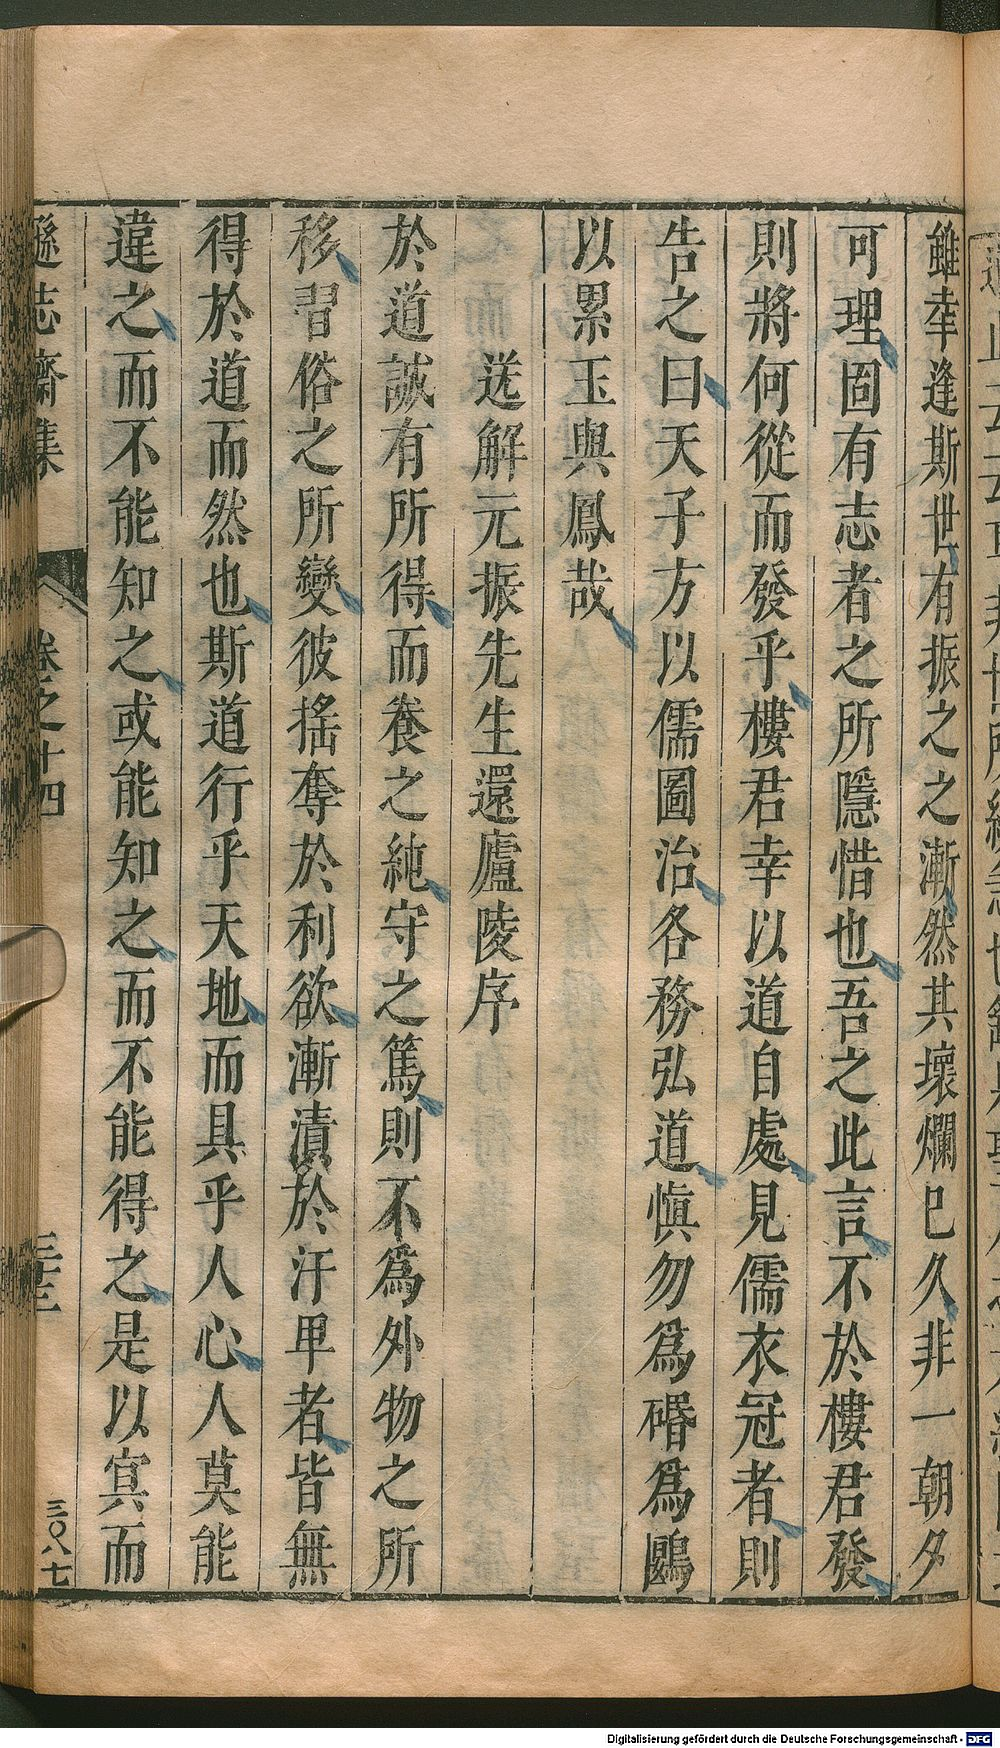 雖幸逢斯世有振之之漸然其壞爛已久非一朝夕
可理固有志者之所隱惜也吾之此言不於樓君發
則將何從而發乎樓君幸以道自處見儒衣冠者則
告之曰天子方以儒圖治各務弘道慎勿為碈為鷗
以累玉與鳳哉
送解元振先生還廬陵序
於道誠有所得而養之純守之篤則不為外物之所
移習俗之所變彼搖奪於利欲漸漬於汙卑者皆無
得於道而然也斯道行乎天地而具乎人心人莫能
違之而不能知之或能知之而不能得之是以冥而
遜志齋集 卷之十四 三十三 三〇八七
Digitalisierung gefördert durch die Deutsche Forschungsgemeinschaft - DFG